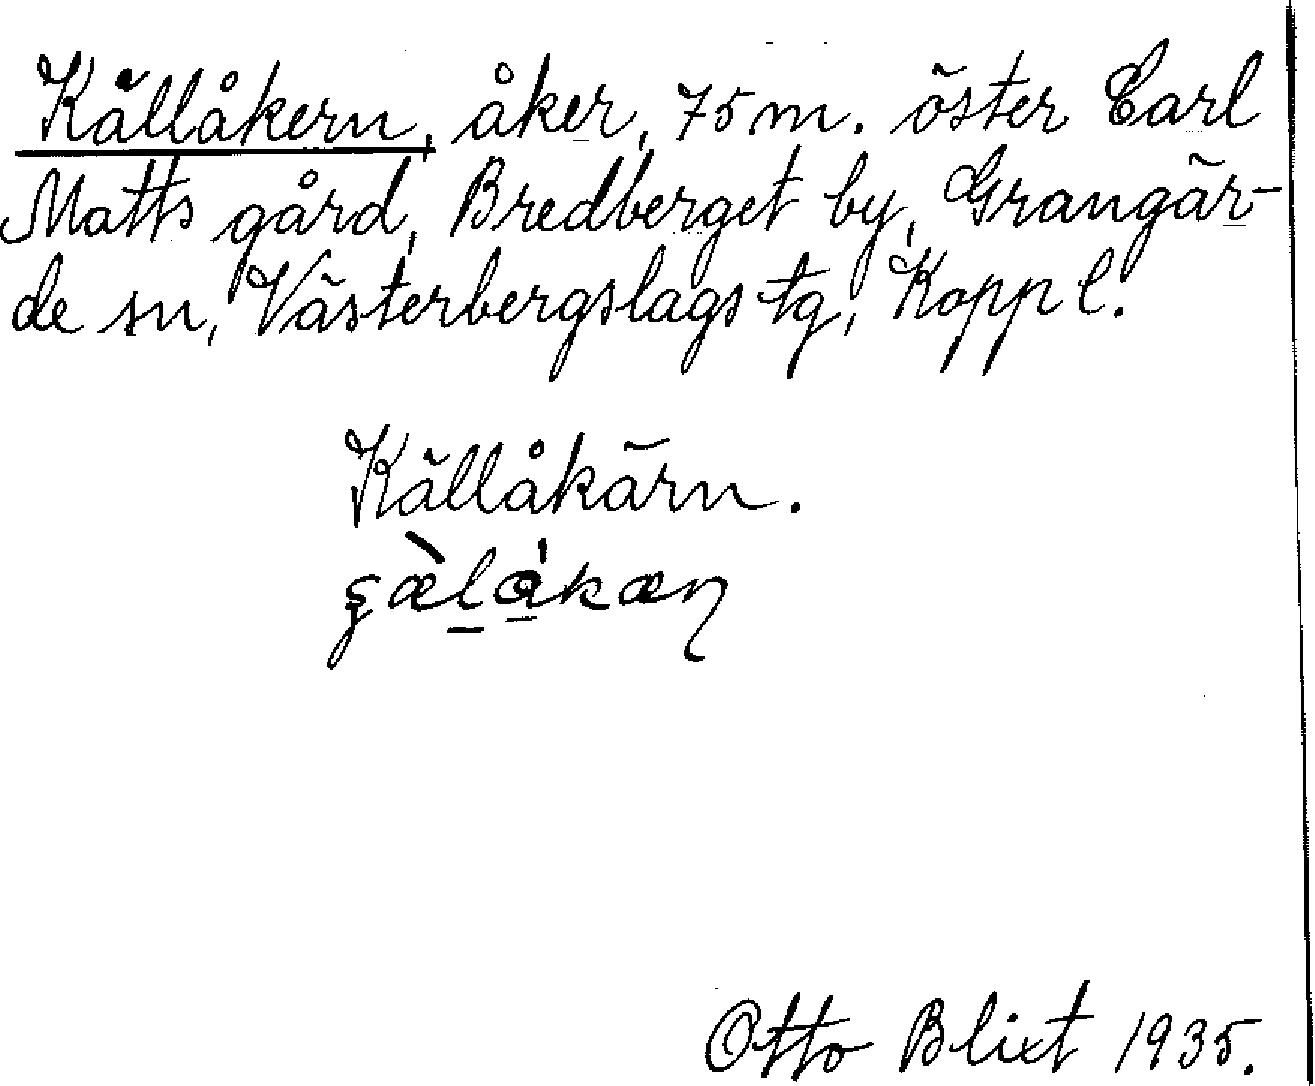 Källåkern, åker, 75 m. öster Carl
Matts gård, Bredberget by, Grangär-
de sn, Västerbergslags tg, Kopp l.
Källåkärn.
Otto Blixt 1935.